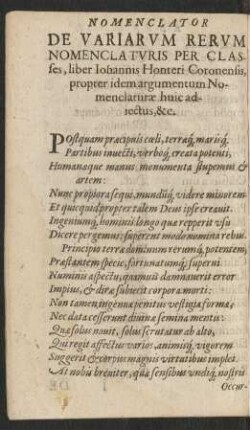 NOMENCLATOR
DE VARIARVM RERVM
NOMENCLATVRIS PER CLAS-
ses, liber Iohannis Honteri Coronensis,
propter idem argumentum No-
menclaturæ huic ad-
iectus, &c.
POstquam præcipuis cœli, terraq́, mariq́,
Partibus inuecti, verboq́, creata potenti,
Humanæque manus monumenta stupenmus &
artem:
Nunc propiora sequi, mundiq́, videre minorem
Et quicquid propter talem Deus ipse creauit.
Ingeniumq́, hominis longo quæ repperit vsu
Dicere pergemus: superent modo nomina rebus.
Principio terræ dominum rerumq́, potentem,
Præstantem specie, fortunatumq́, superni
Numinis aspectu, quamuis damnauerit error
Impius, & diræ subiecit corpora morti:
Non tamen ingenua penitus vestigia forma,
Nec data cesserunt diuinæ semina mentis:
Quæ solus nouit, solus scrutatur ab alto,
Qui regit affectus varios, animisq́, vigorem
Suggerit & corpus magnis virtutibus implet.
At nobis breuiter, quæ sensibus vndiq́, nostris
Occur-